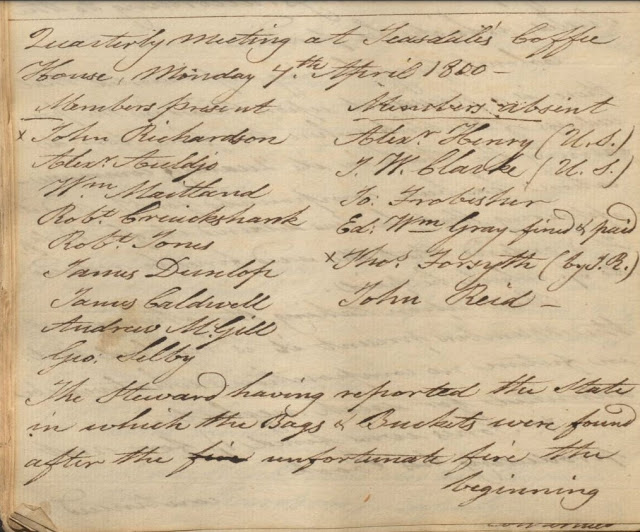 Quarterly Meeting at Teasdale's Coffee
House, Monday 7th April 1800 -
Members present
x John Richardson
Alexr. Auldjo
Wm Maitland
Robt. Cruickshank
Robt. Jones
James Dunlop
James Caldwell
Andrew McGill
Geo: Selby
Members absent
Alexr Henry (U.S.)
J. W. Clarke (U.S.)
Jo: Frobisher
Ed: Wm Gray fined & paid
x Thos. Forsyth (by J.R.)
John Reid -
The Steward having reported the State
in which the Bags & Buckets were found
after the fire unfortunate fire the
beginning